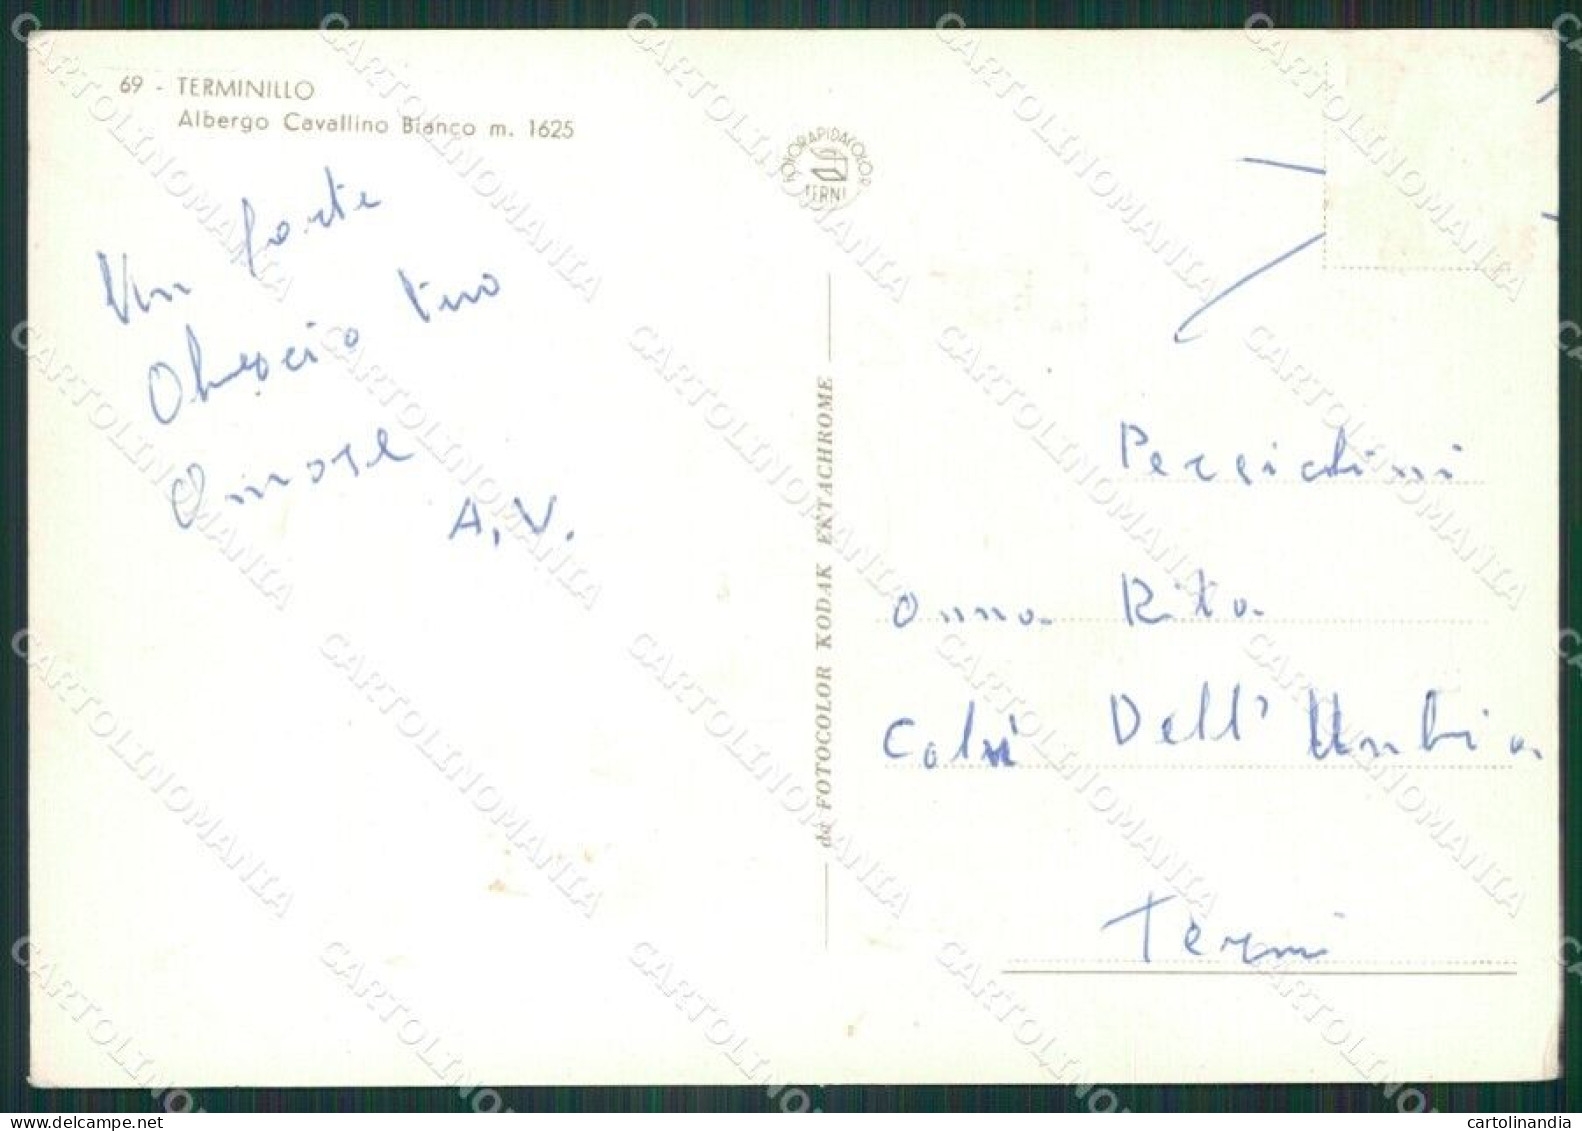 69 - TERMINILLO
Albergo Cavallino Bianco m. 1625
FOTORAPIDACOLOR
TERNI
Un forte
Abraccio tuo
Amore
A, V.
da FOTOCOLOR KODAK EKTACHROME
Persichini
Anna Rita
Dell' Umbria
Terni
CARTOLINOMANIA
cartolinandia